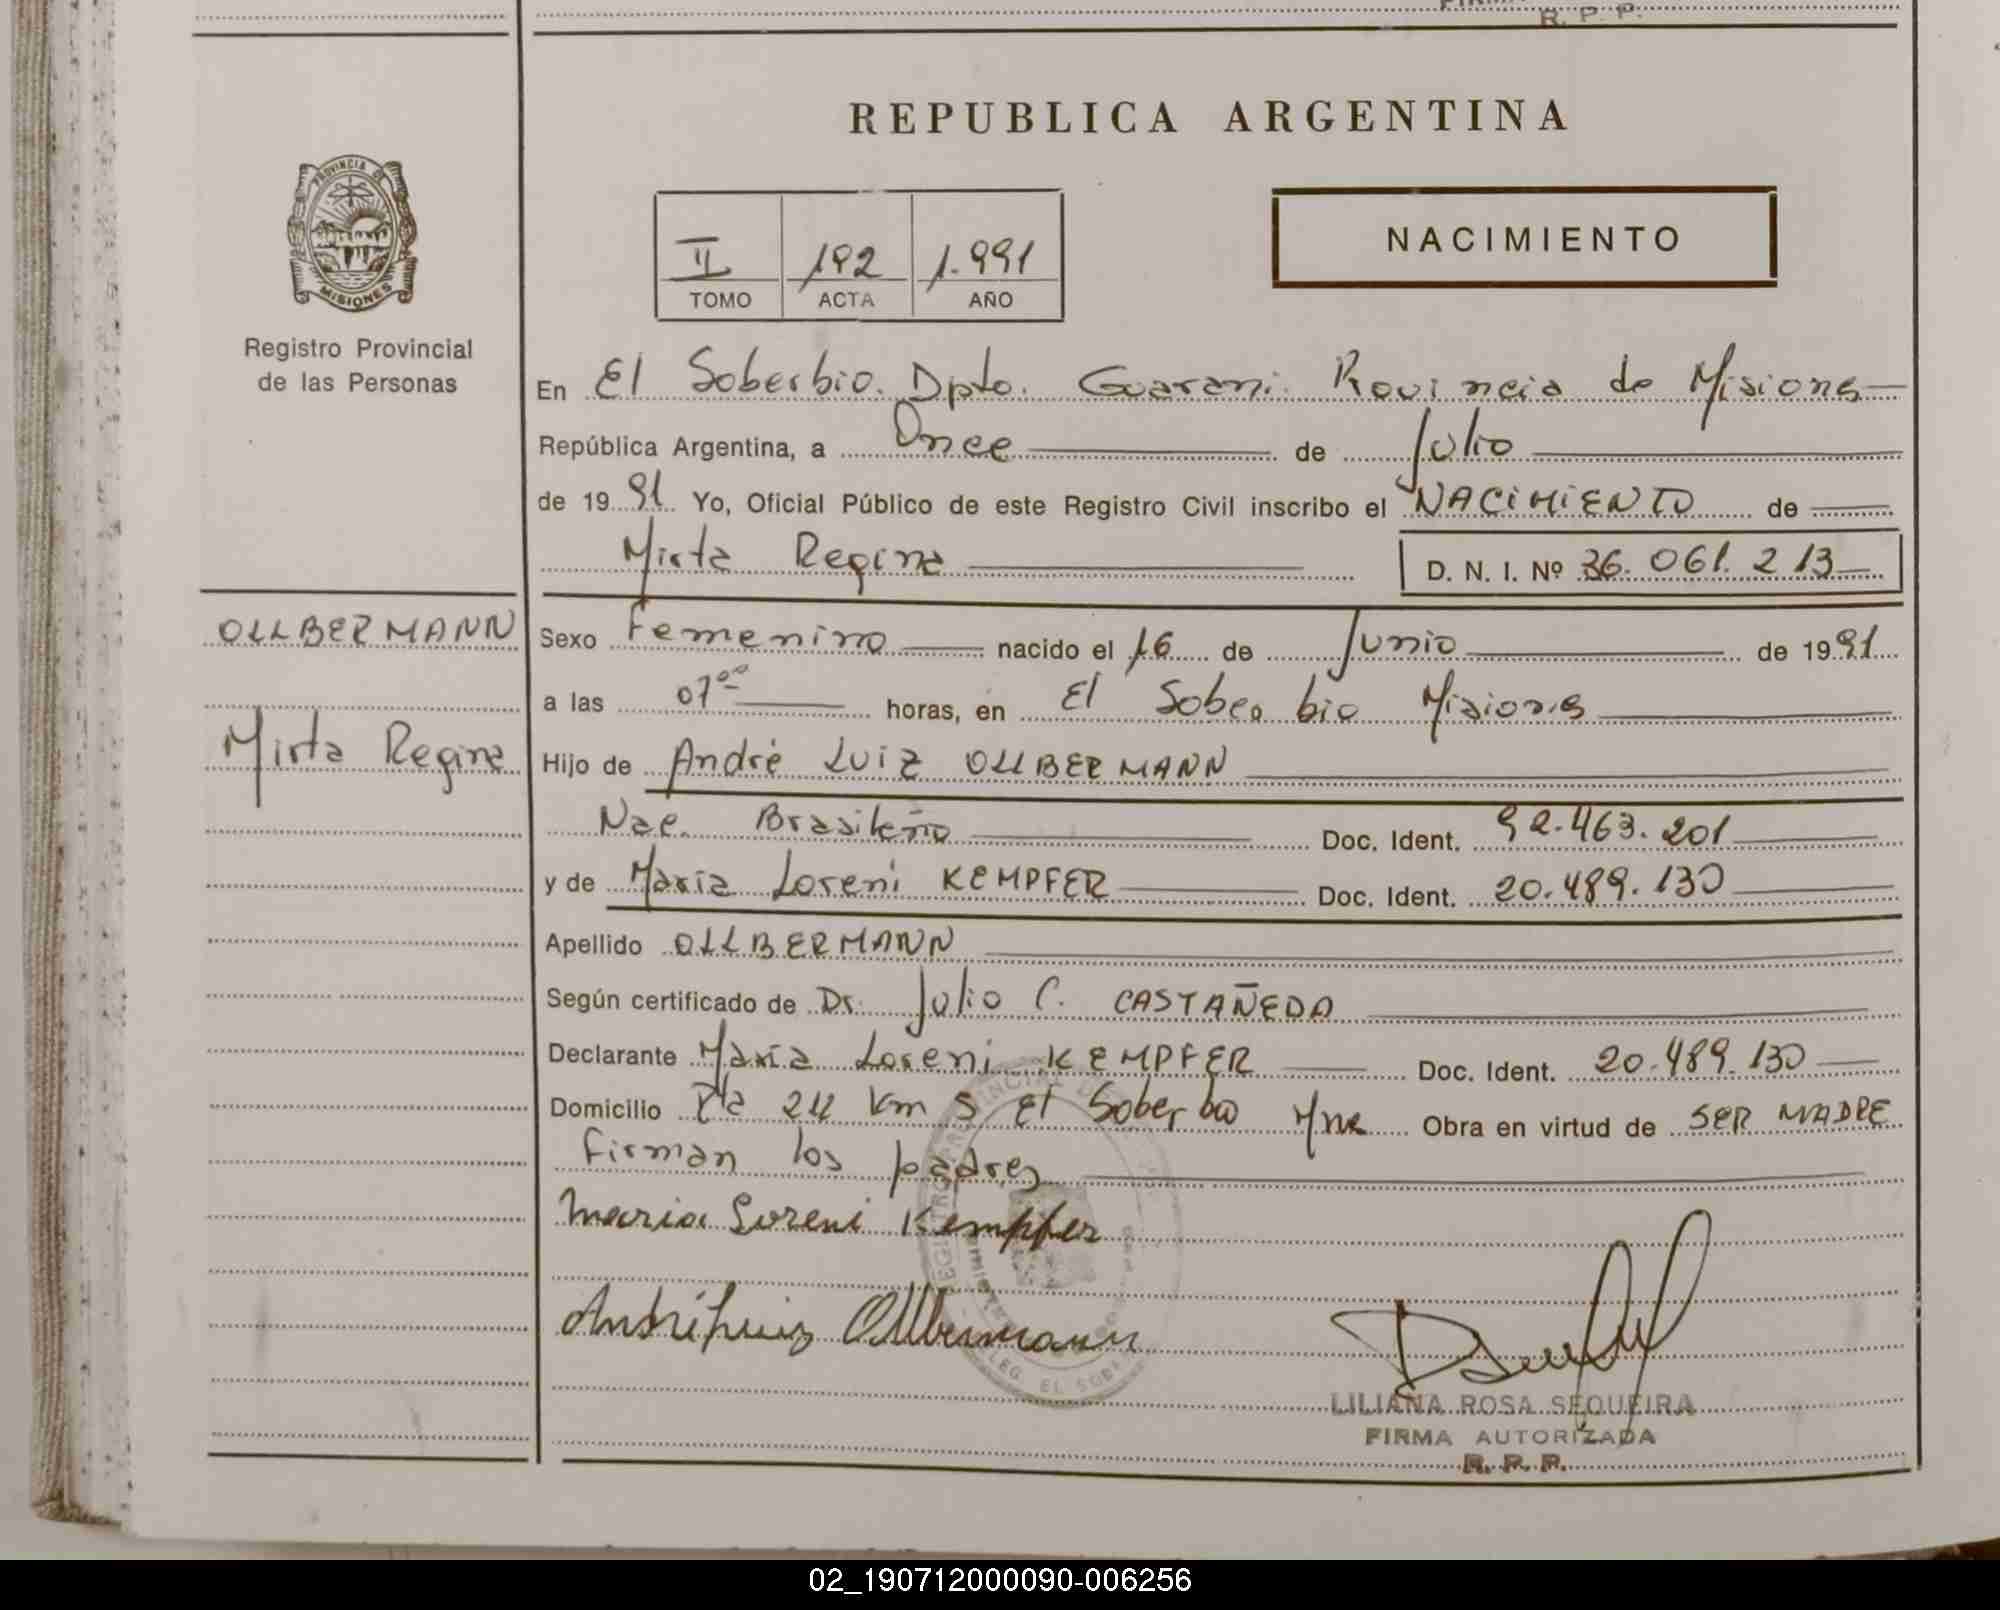 R. P. P.
REPUBLICA ARGENTINA
PROVINCIA DE
MISIONES
Registro Provincial
de las Personas
II 192 1.991
TOMO ACTA AÑO
NACIMIENTO
En El Soberbio. Dpto. Guarani. Provincia de Misiones
República Argentina, a Once de Julio
de 19 91 Yo, Oficial Público de este Registro Civil inscribo el NACIMIENTO de
Mirta Regina D. N. I. Nº 36.061.213
OLLBERMANN
Mirta Regina
Sexo Femenino nacido el 16 de Junio de 1991
a las 07 00 horas, en El Soberbio Misiones
Hijo de André Luiz OLLBERMANN
Nac. Brasileño Doc. Ident. 92.463.201
y de Maria Loreni KEMPFER Doc. Ident. 20.489.130
Apellido OLLBERMANN
Según certificado de Dr. Julio C. CASTAÑEDA
Declarante María Loreni KEMPFER Doc. Ident. 20.489.130
Domicilio Rta 211 Km 5 El Soberbio Mnes Obra en virtud de SER MADRE
Firman los padres
Maria Loreni Kempfer
André Luiz Ollbermann
LILIANA ROSA SEQUEIRA
FIRMA AUTORIZADA
R. P. P.
02_190712000090-006256